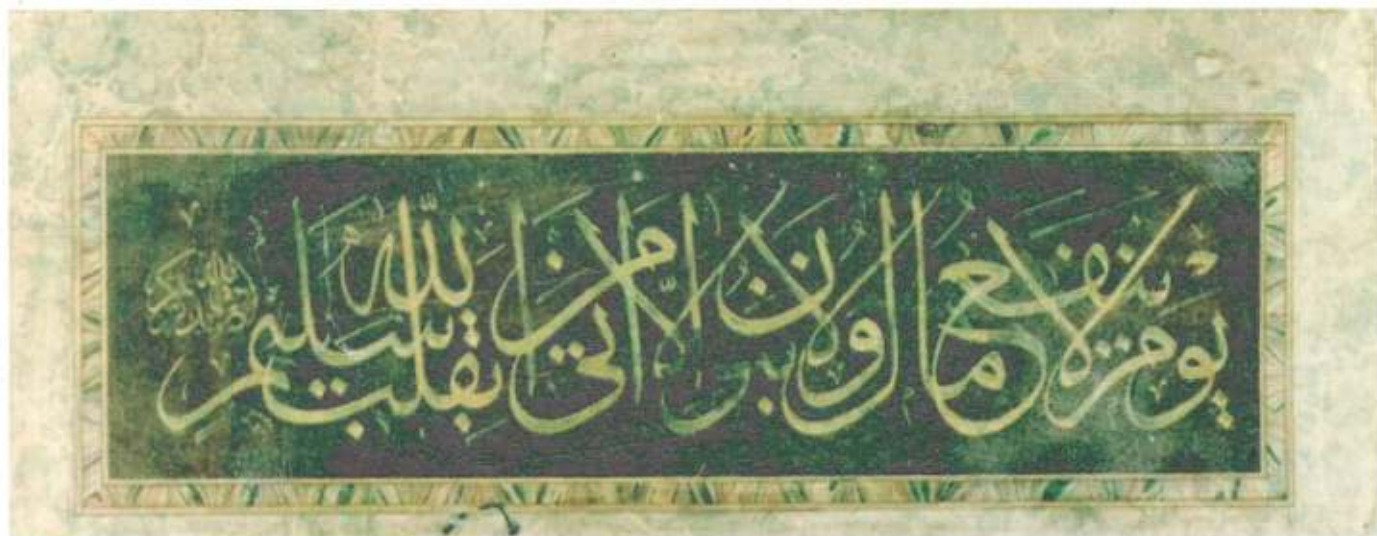 يوم لا ينفع مال ولا بنون الا من اتى الله بقلب سليم